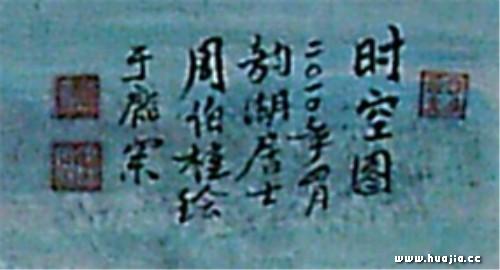 时空图
二〇一〇年四月
韵湖居士
周伯柱绘
于龐
www.huajia.cc